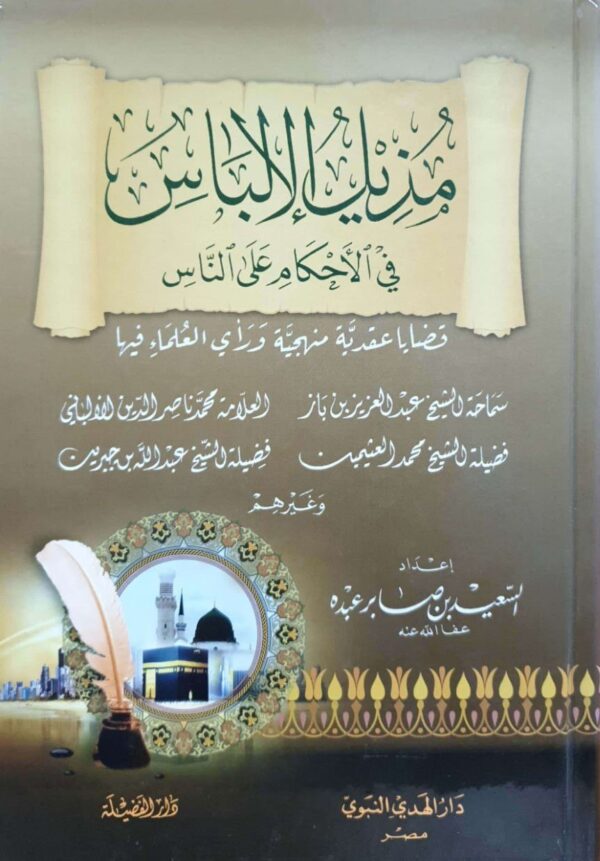 مُزِيْلُ الإِلْبَاسِ
فِي الأَحْكَامِ عَلَى النَّاسِ
قضايا عقديَّة منهجيَّة وَرَأي العُلمَاءِ فيها
سَمَاحَة الشيخ عبد العزيز بن باز العلَّامة محمَّد ناصر الدين الألباني
فضيلة الشيخ محمد العثيمين فضيلة الشَّيخ عبد الله بن جبرين
وَغَيْرِهِمْ
إعْدَاد
السَّعيد بن صابر عبده
عفا الله عنه
دَارُ الهَدي النبَوي دَارُ الفَضيْلَة
مصر